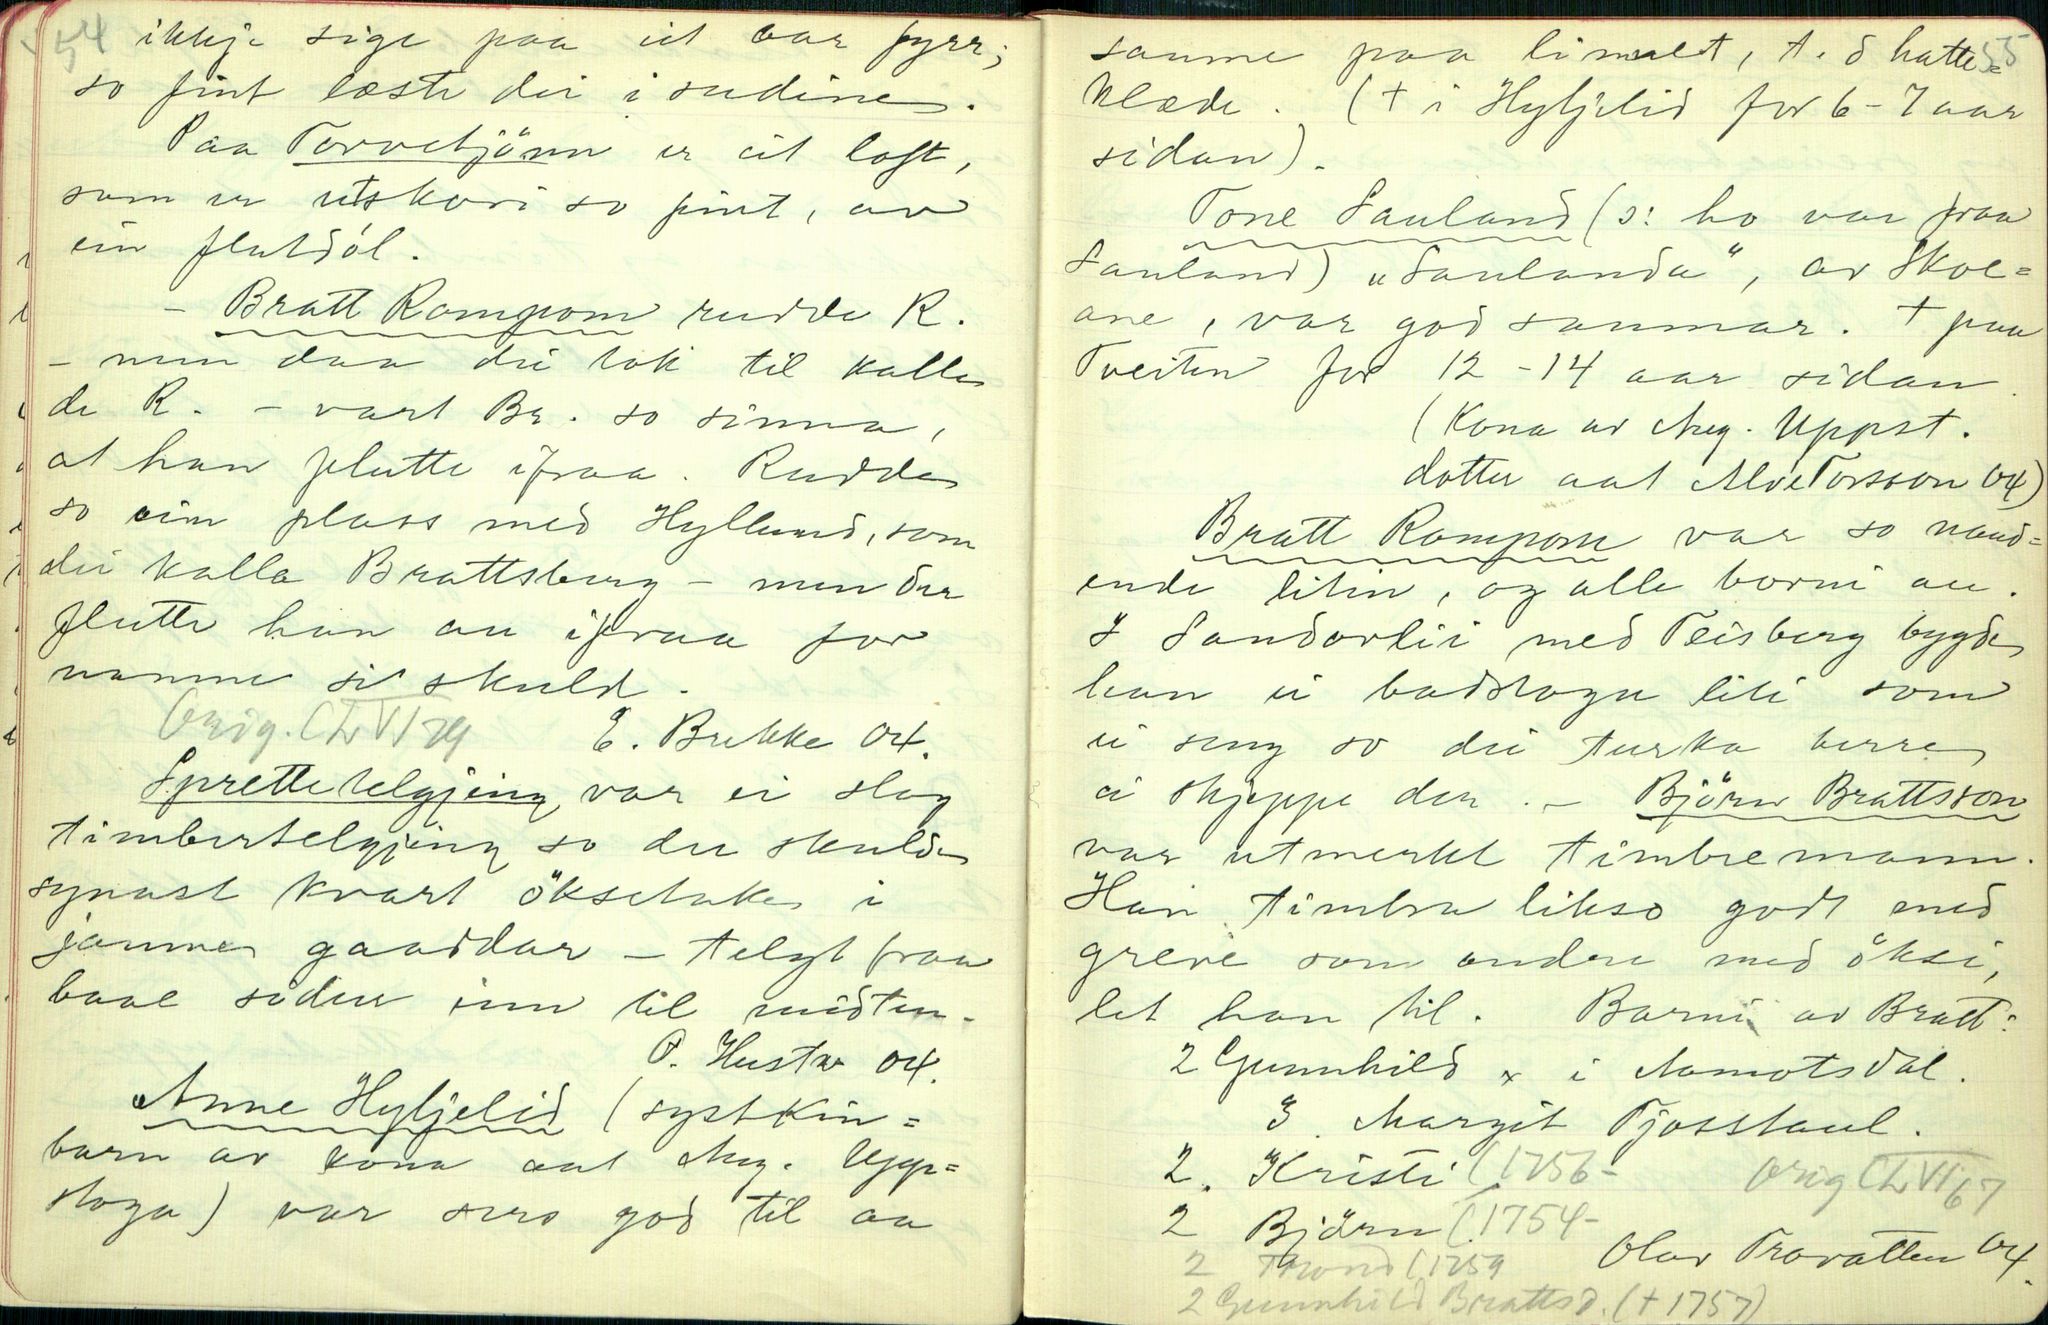 54
ikkje sige paa eit aar fyrr;
so fint læste dei i sudine.
Paa Torvetjönn er eit loft,
som er utskori so fint, av
ein flatdöl.
- Bratt Rompom rudde R.
- men daa dei tok til kalle
de R. - vart Br. so sinna,
at han flutte ifraa. Rudde
so ein plass med Hyllund, som
dei kalla Brattsberg - men der
flutte han au ifraa for
namne si skuld.
Orig. CLVI 79 E. Brekke 04.
Sprettetelgjing var ei slag
timbertelgjing so der skulde
synast kvart öksetak i
jamne gaaddar - telgt fraa
baae sidur inn til midten.
O. Hustv 04.
Anne Hyljelid (systkin=
barn av kona aat Aug. Upp=
stoga) var sers god til aa
55
saume paa limalet, t. d hatte=
klæde. († i Hyljelid for 6-7 aar
sidan).
Tone Sauland (ɔ: ho var fraa
Sauland) "Saulanda", av Skoe=
ane, var god saumar. † paa
Tveiten for 12-14 aar sidan.
(Kona av Aug. Uppst.
dotter aat Alv Torsson 04)
Bratt Rompom var so naud=
ende litin, og alle borni au.
I Sandarlii med Teisberg bygde
han ei badstogu liti som
ei seng so dei turka berre
ei skjeppe der. - Björn Brattsson
var utmerkt timbremann.
Han timbra likso godt med
greve som andre med öksi,
let han til. Barni av Bratt:
2 Gunnhild x i Aamotsdal.
3. Margit Tjosstaul.
2. Kristi (1756- Orig CLVI 67
2 Björn (1754-
Olav Trovatten 04.
2 Trond (1759
2 Gunnhild Brattsd. († 1757)